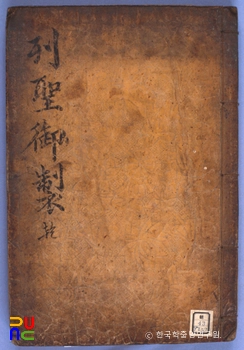 列聖御製
© 한국학중앙연구원